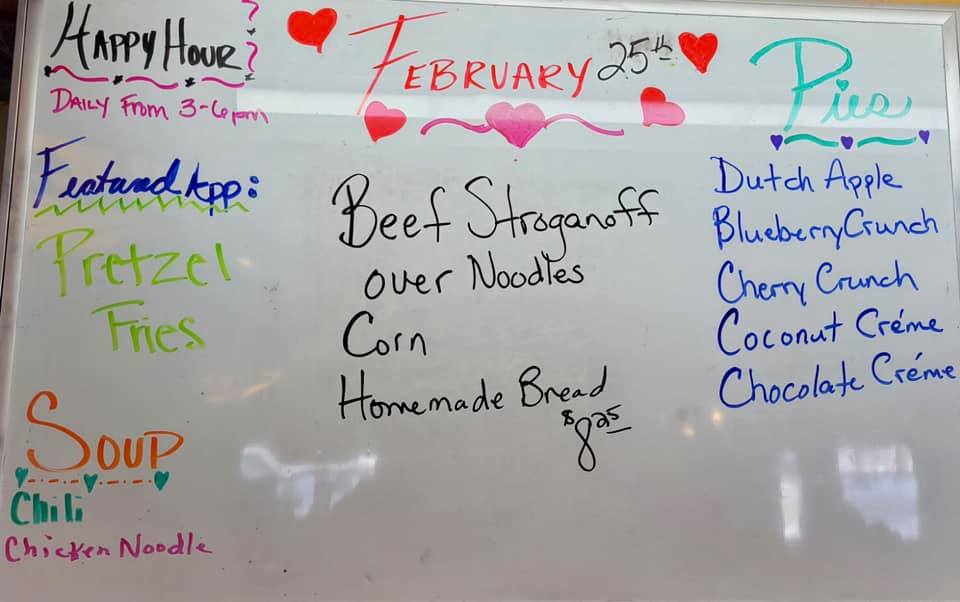 Happy Hour
Daily From 3-6pm
Featured App:
Pretzel
Fries
Soup
Chili
Chicken Noodle
February 25th
Beef Stroganoff
over Noodles
Corn
Homemade Bread
$8.25
Pies
Dutch Apple
Blueberry Crunch
Cherry Crunch
Coconut Créme
Chocolate Créme